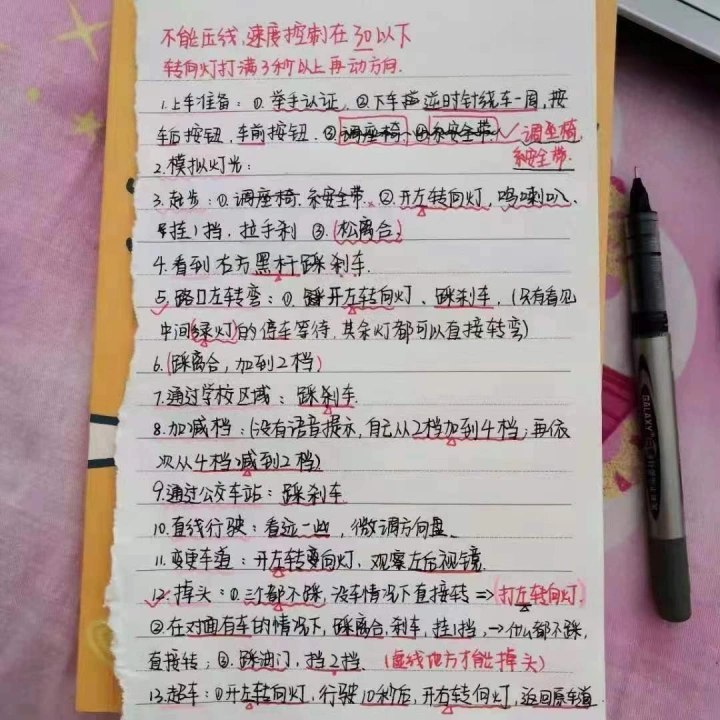 不能压线,速度控制在30以下
转向灯打满3秒以上再动方向.
1.上车准备:①.举手认证,②下车逆时针绕车一周,按
车后按钮,车前按钮.③调座椅.④系安全带.✓调座椅,
系安全带.
2.模拟灯光:
3.起步:①.调座椅.系安全带.②.开左转向灯,鸣喇叭、
挂1挡,拉手刹 ③.(松离合)
4.看到右方黑杆踩刹车.
5.路口左转弯:①.踩开左转向灯、踩刹车,(只有看见
中间绿灯的停车等待,其余灯都可以直接转弯)
6.(踩离合,加到2档)
7.通过学校区域:踩刹车.
8.加减档:(没有语音提示,自己从2档加到4档;再依
次从4档减到2档)
9.通过公交车站:踩刹车
10.直线行驶:看远一些,微调方向盘.
11.变更车道:开左转向灯,观察左后视镜.
12.掉头:①.三个都不踩,没车情况下直接转→(打左转向灯)
②在对面有车的情况下,踩离合,刹车,挂1挡,→什么都不踩,
直接转;③.踩油门,挡2挡.(虚线地方才能掉头)
13.超车:①开左转向灯,行驶10秒后,开右转向灯,返回原车道
GALAXY